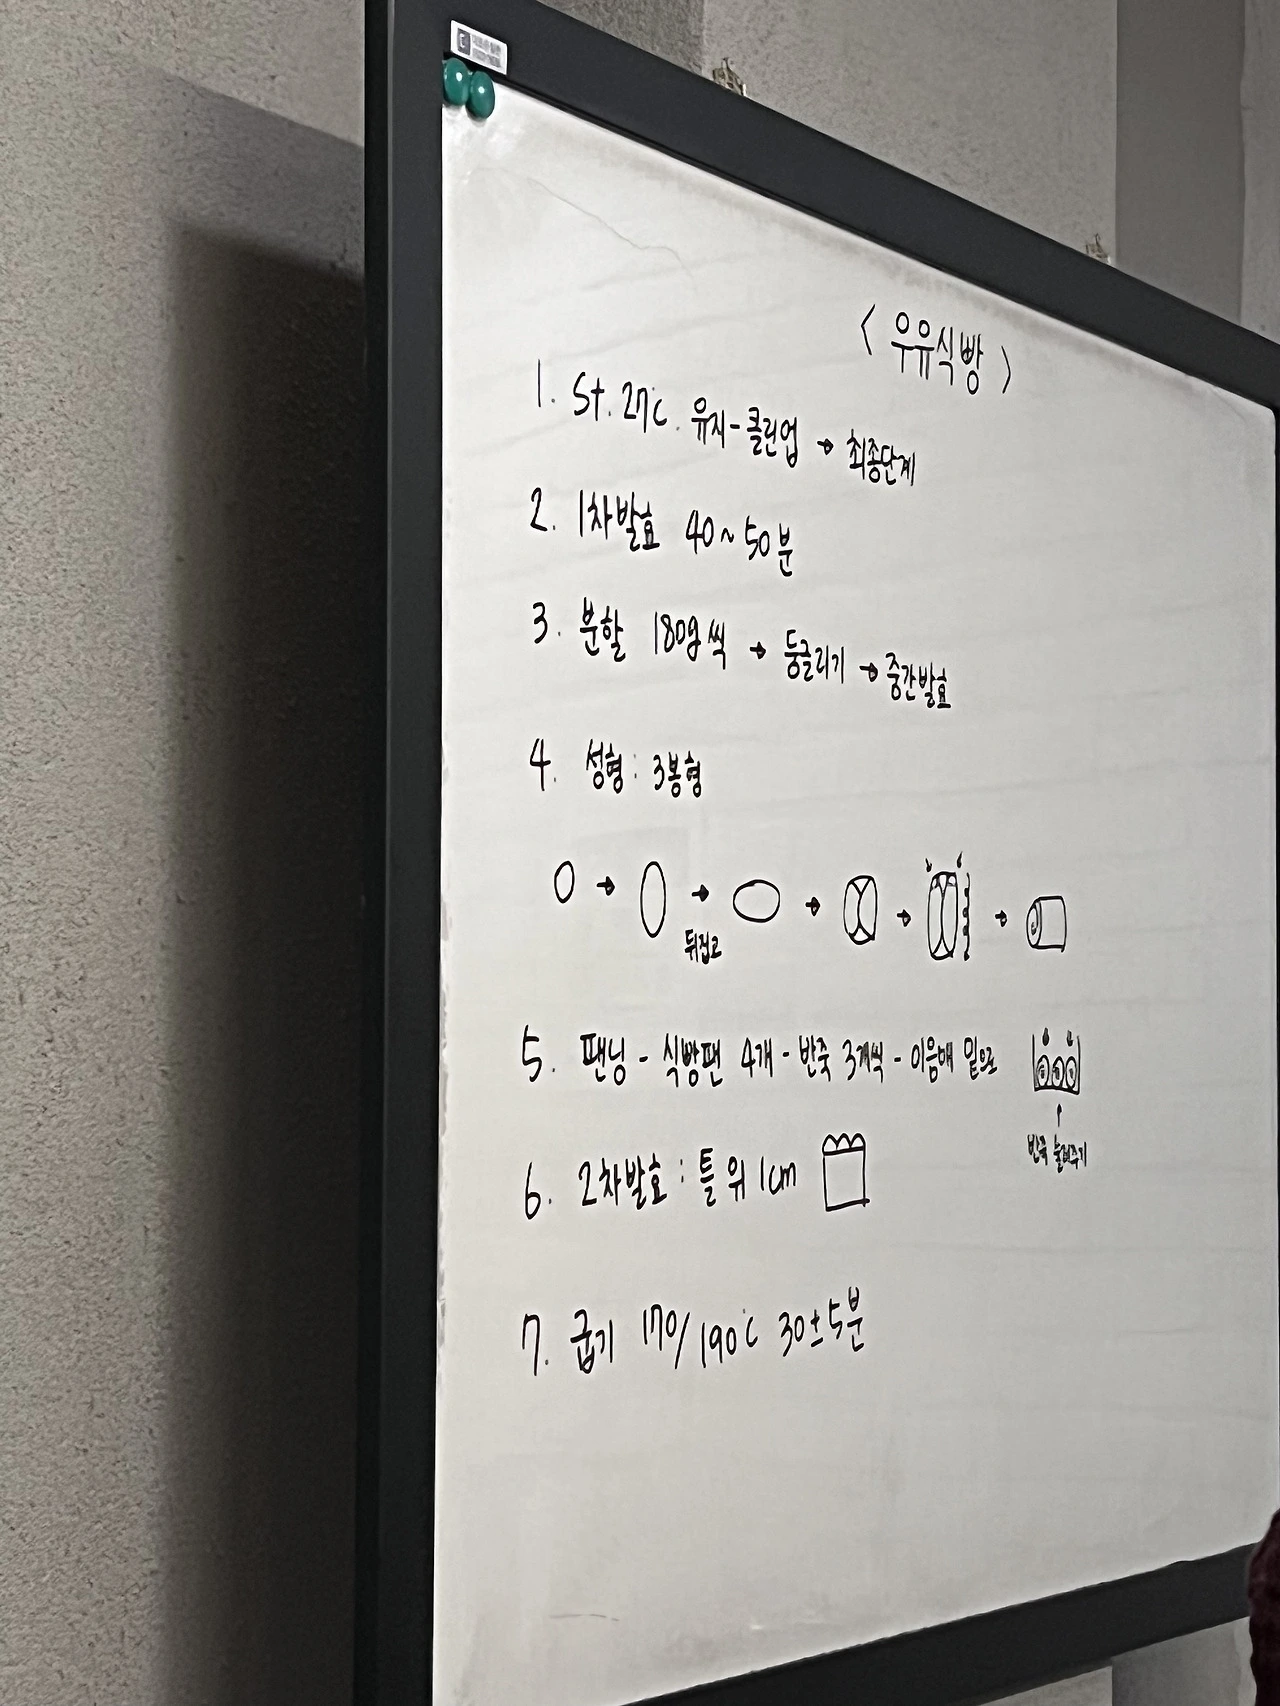 < 우유식빵 >
1. St. 27℃. 유지-클린업 → 최종단계
2. 1차발효 40~50분
3. 분할 180g씩 → 둥글리기 → 중간발효
4. 성형: 3봉형
뒤집고
5. 팬닝 - 식빵팬 4개 - 반죽 3개씩 - 이음매 밑으로
반죽 눌러주기
6. 2차발효 : 틀 위 1cm
7. 굽기 170/190℃ 30±5분